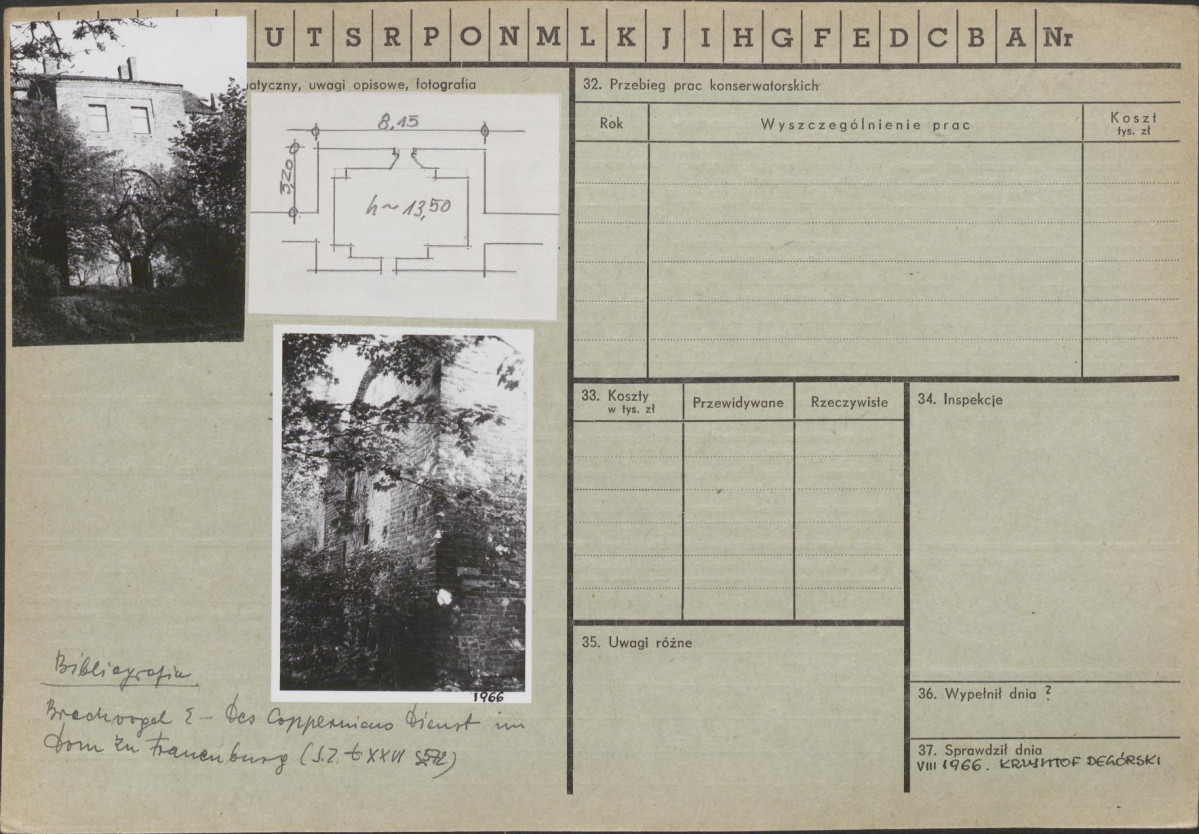 U T S R P O N M L K J I H G F E D C B A Nr
atyczny, uwagi opisowe, fotografia
8,15
3,20
h ~ 13,50
1966
Bibliografia
Brachvogel E – Des Coppernicus Dienst im
Dom zu Frauenburg (S.Z. t XXVII
32. Przebieg prac konserwatorskich
Rok Wyszczególnienie prac Koszt
tys. zł
33. Koszty Przewidywane Rzeczywiste
w tys. zł
34. Inspekcje
35. Uwagi różne
36. Wypełnił dnia ?
37. Sprawdził dnia
VIII 1966. KRZYSZTOF DEGÓRSKI